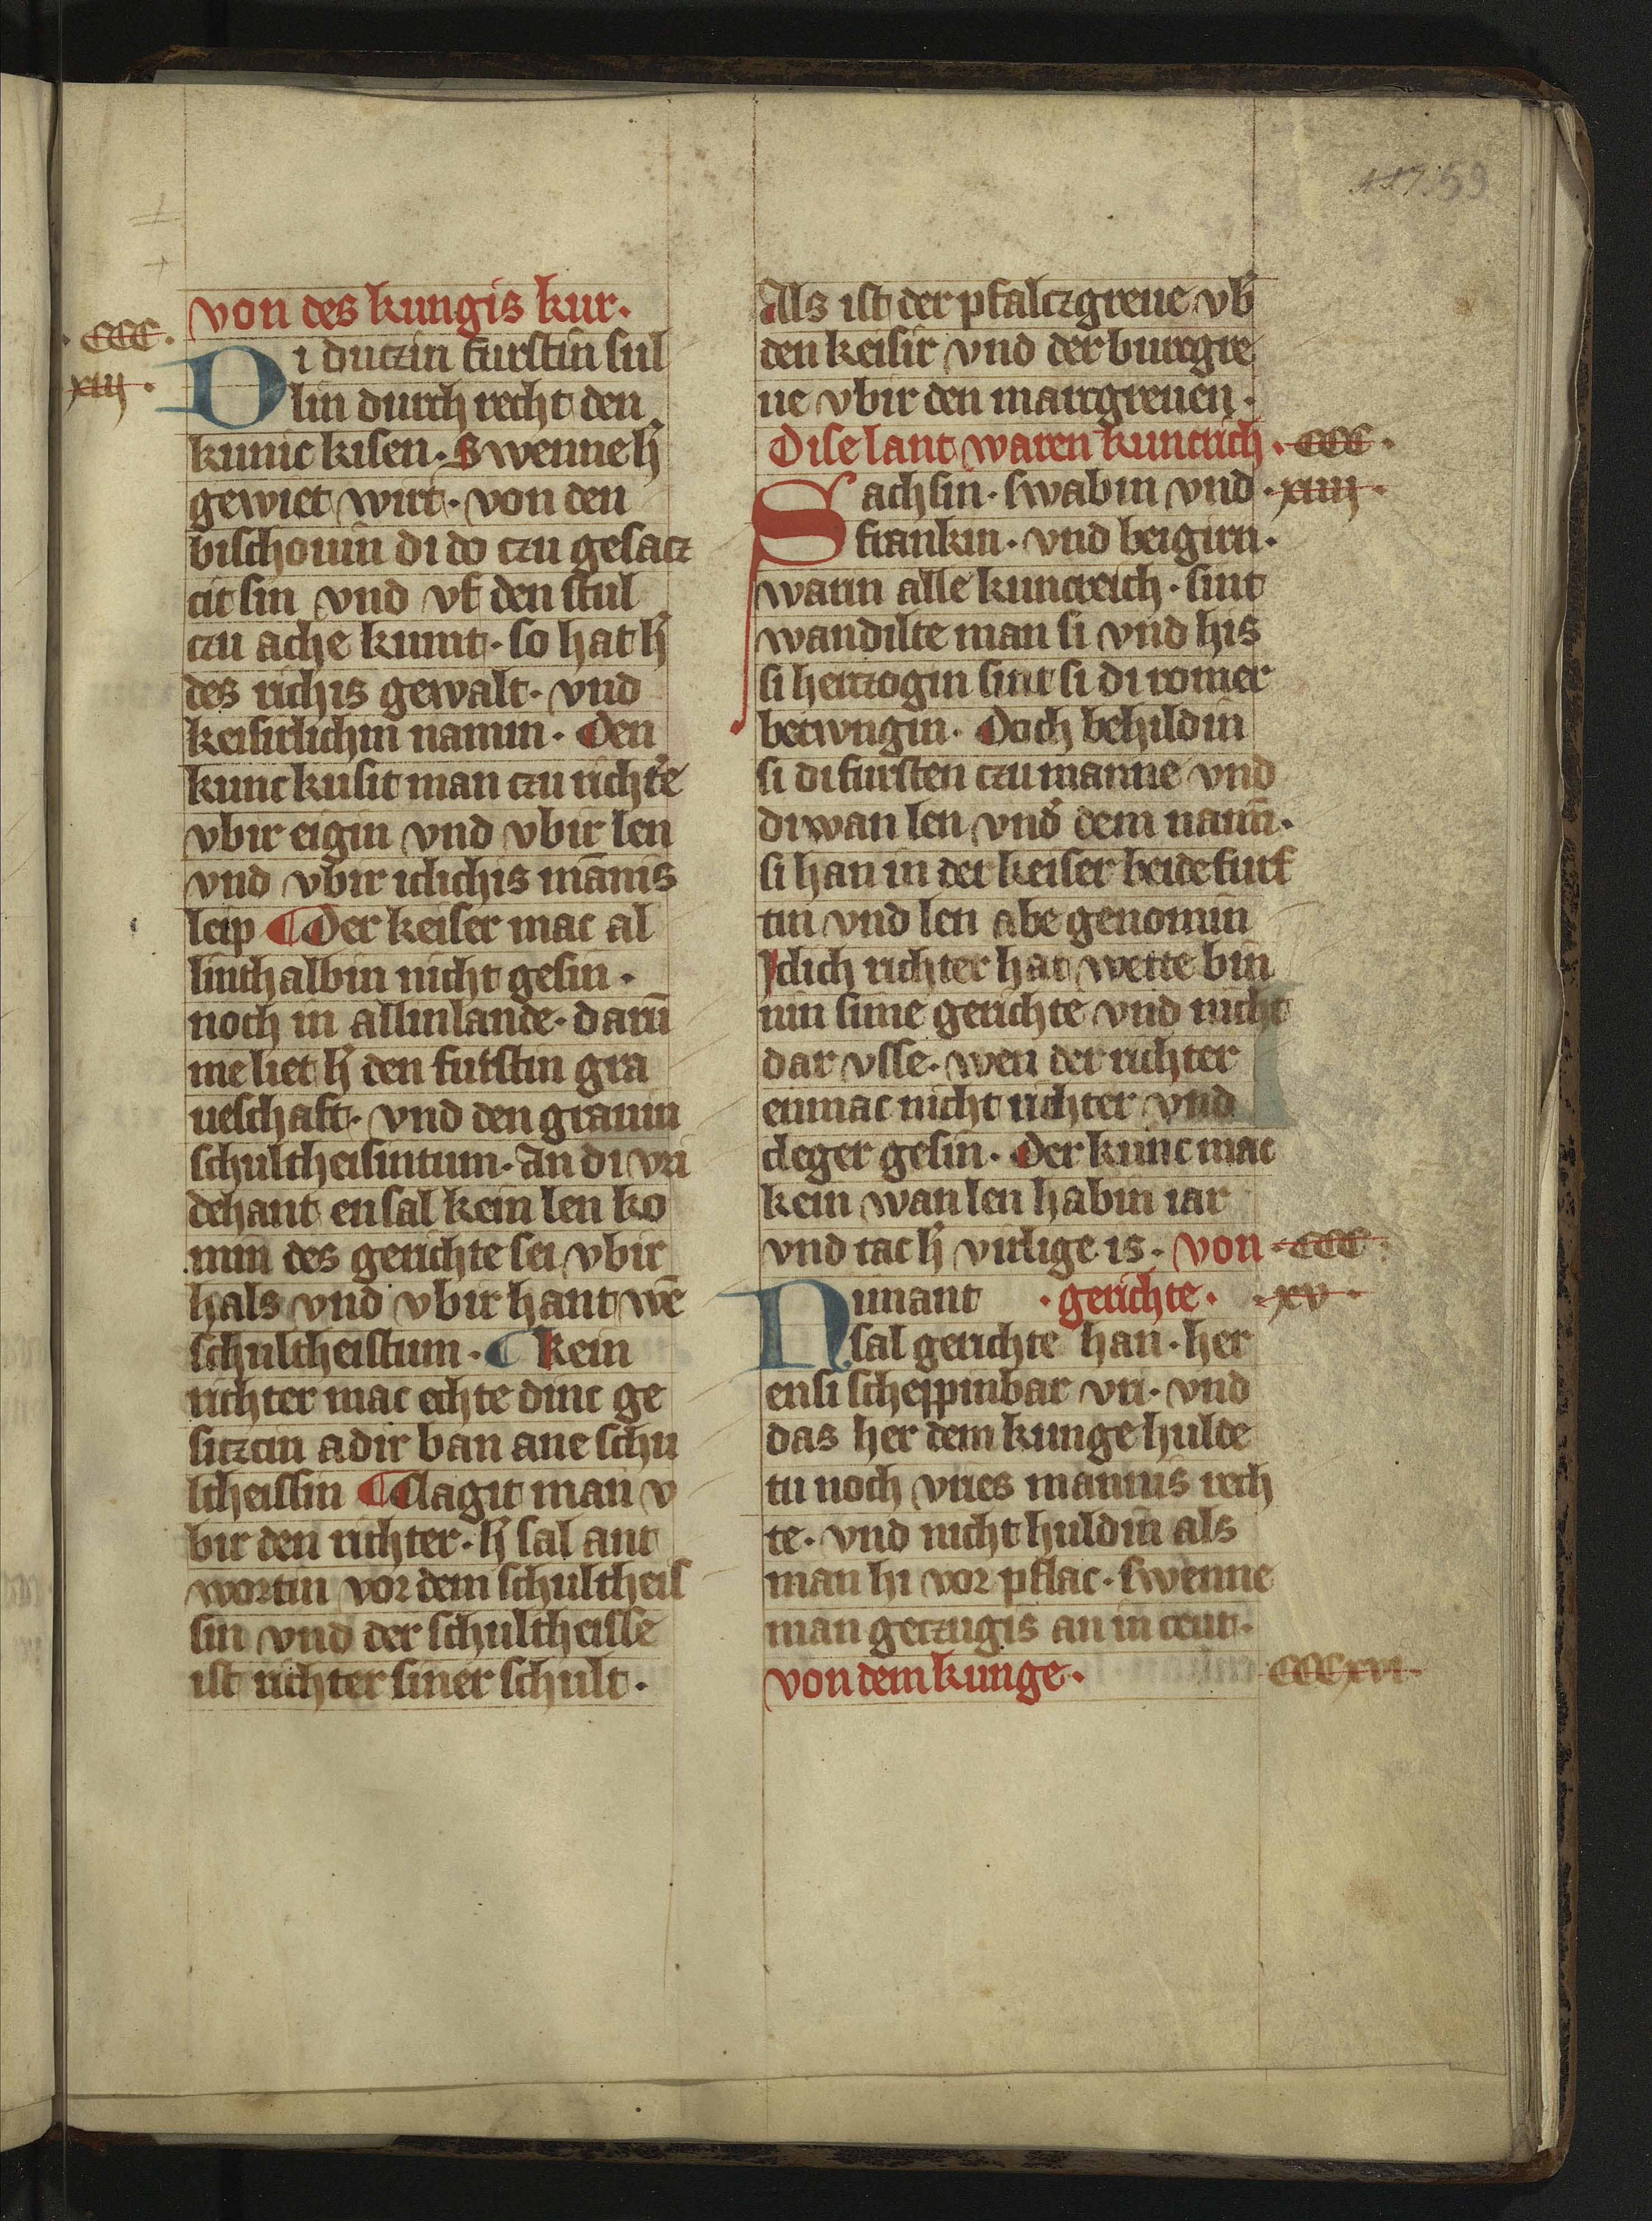 117. 59
von des kungis kur.
·CCC·
xiij·
Di dutzin furstin sul
lin durch recht den
kunic kisen· Swenne h̄
gewiet wirt· von den
bischouin di do czu gesacz
cit sin vnd vf den stul
czu ache kumt· so hat h̄
des richis gewalt· vnd
keisirlichin namin· Den
kunc kusit man czu richte̛
vbir eigin vnd vbir len
vnd vbir iclichis mānis
leip ¶ Der keiser mac al
linthalbin nicht gesin·
noch in allinlande· darū
me liet h̄ den furstin gra
ueschaft· vnd den grauin
schultheisintum· An di vri
dehant ensal kein len ko
min des gerichte sei vbir
hals vnd vbir hant wē
schultheistum· ¶ kein
richter mac echte dinc ge
sitzcin adir ban ane schu
ltheissin ¶ Clagit man v
bir den richter· h̄ sal ant
wortin vor dem schultheis
sin vnd der schultheisse
ist richter siner schult·
Als ist der pfalczgreue vb̄
den keisir vnd der burcgre
ue vbir den marcgreuen·
Dise lant waren kuncrich· CCC·
Sachsin· swabin vnd ·xiiij·
frankin· vnd beigirn·
warin alle kuncreich· sint
wandilte man si vnd his
si herczogin sint si di romer
betwngin· Doch behildin
si di fursten czu manne vnd
di wan len vnd̛ dem namī·
si han in der keiser beide furs
tin vnd len abe genomin
Iclich richter hat wette bin
nin sime gerichte vnd nicht
dar vsse· wen der richter
enmac nicht richter vnd
cleger gesin· Der kunc mac
kein wan len habin iar
vnd tac h̄ virlige is· von ·CCC·
Nimant ·gerichte· ·xv·
sal gerichte han· her
ensi scheppinbar vri· vnd
das her dem kunge hulde
tu noch vries mannis rech
te· vnd nicht huldin als
man hi vor pflac· swenne
man geczugis an in ceut·
von dem kunge· CCCxvi·